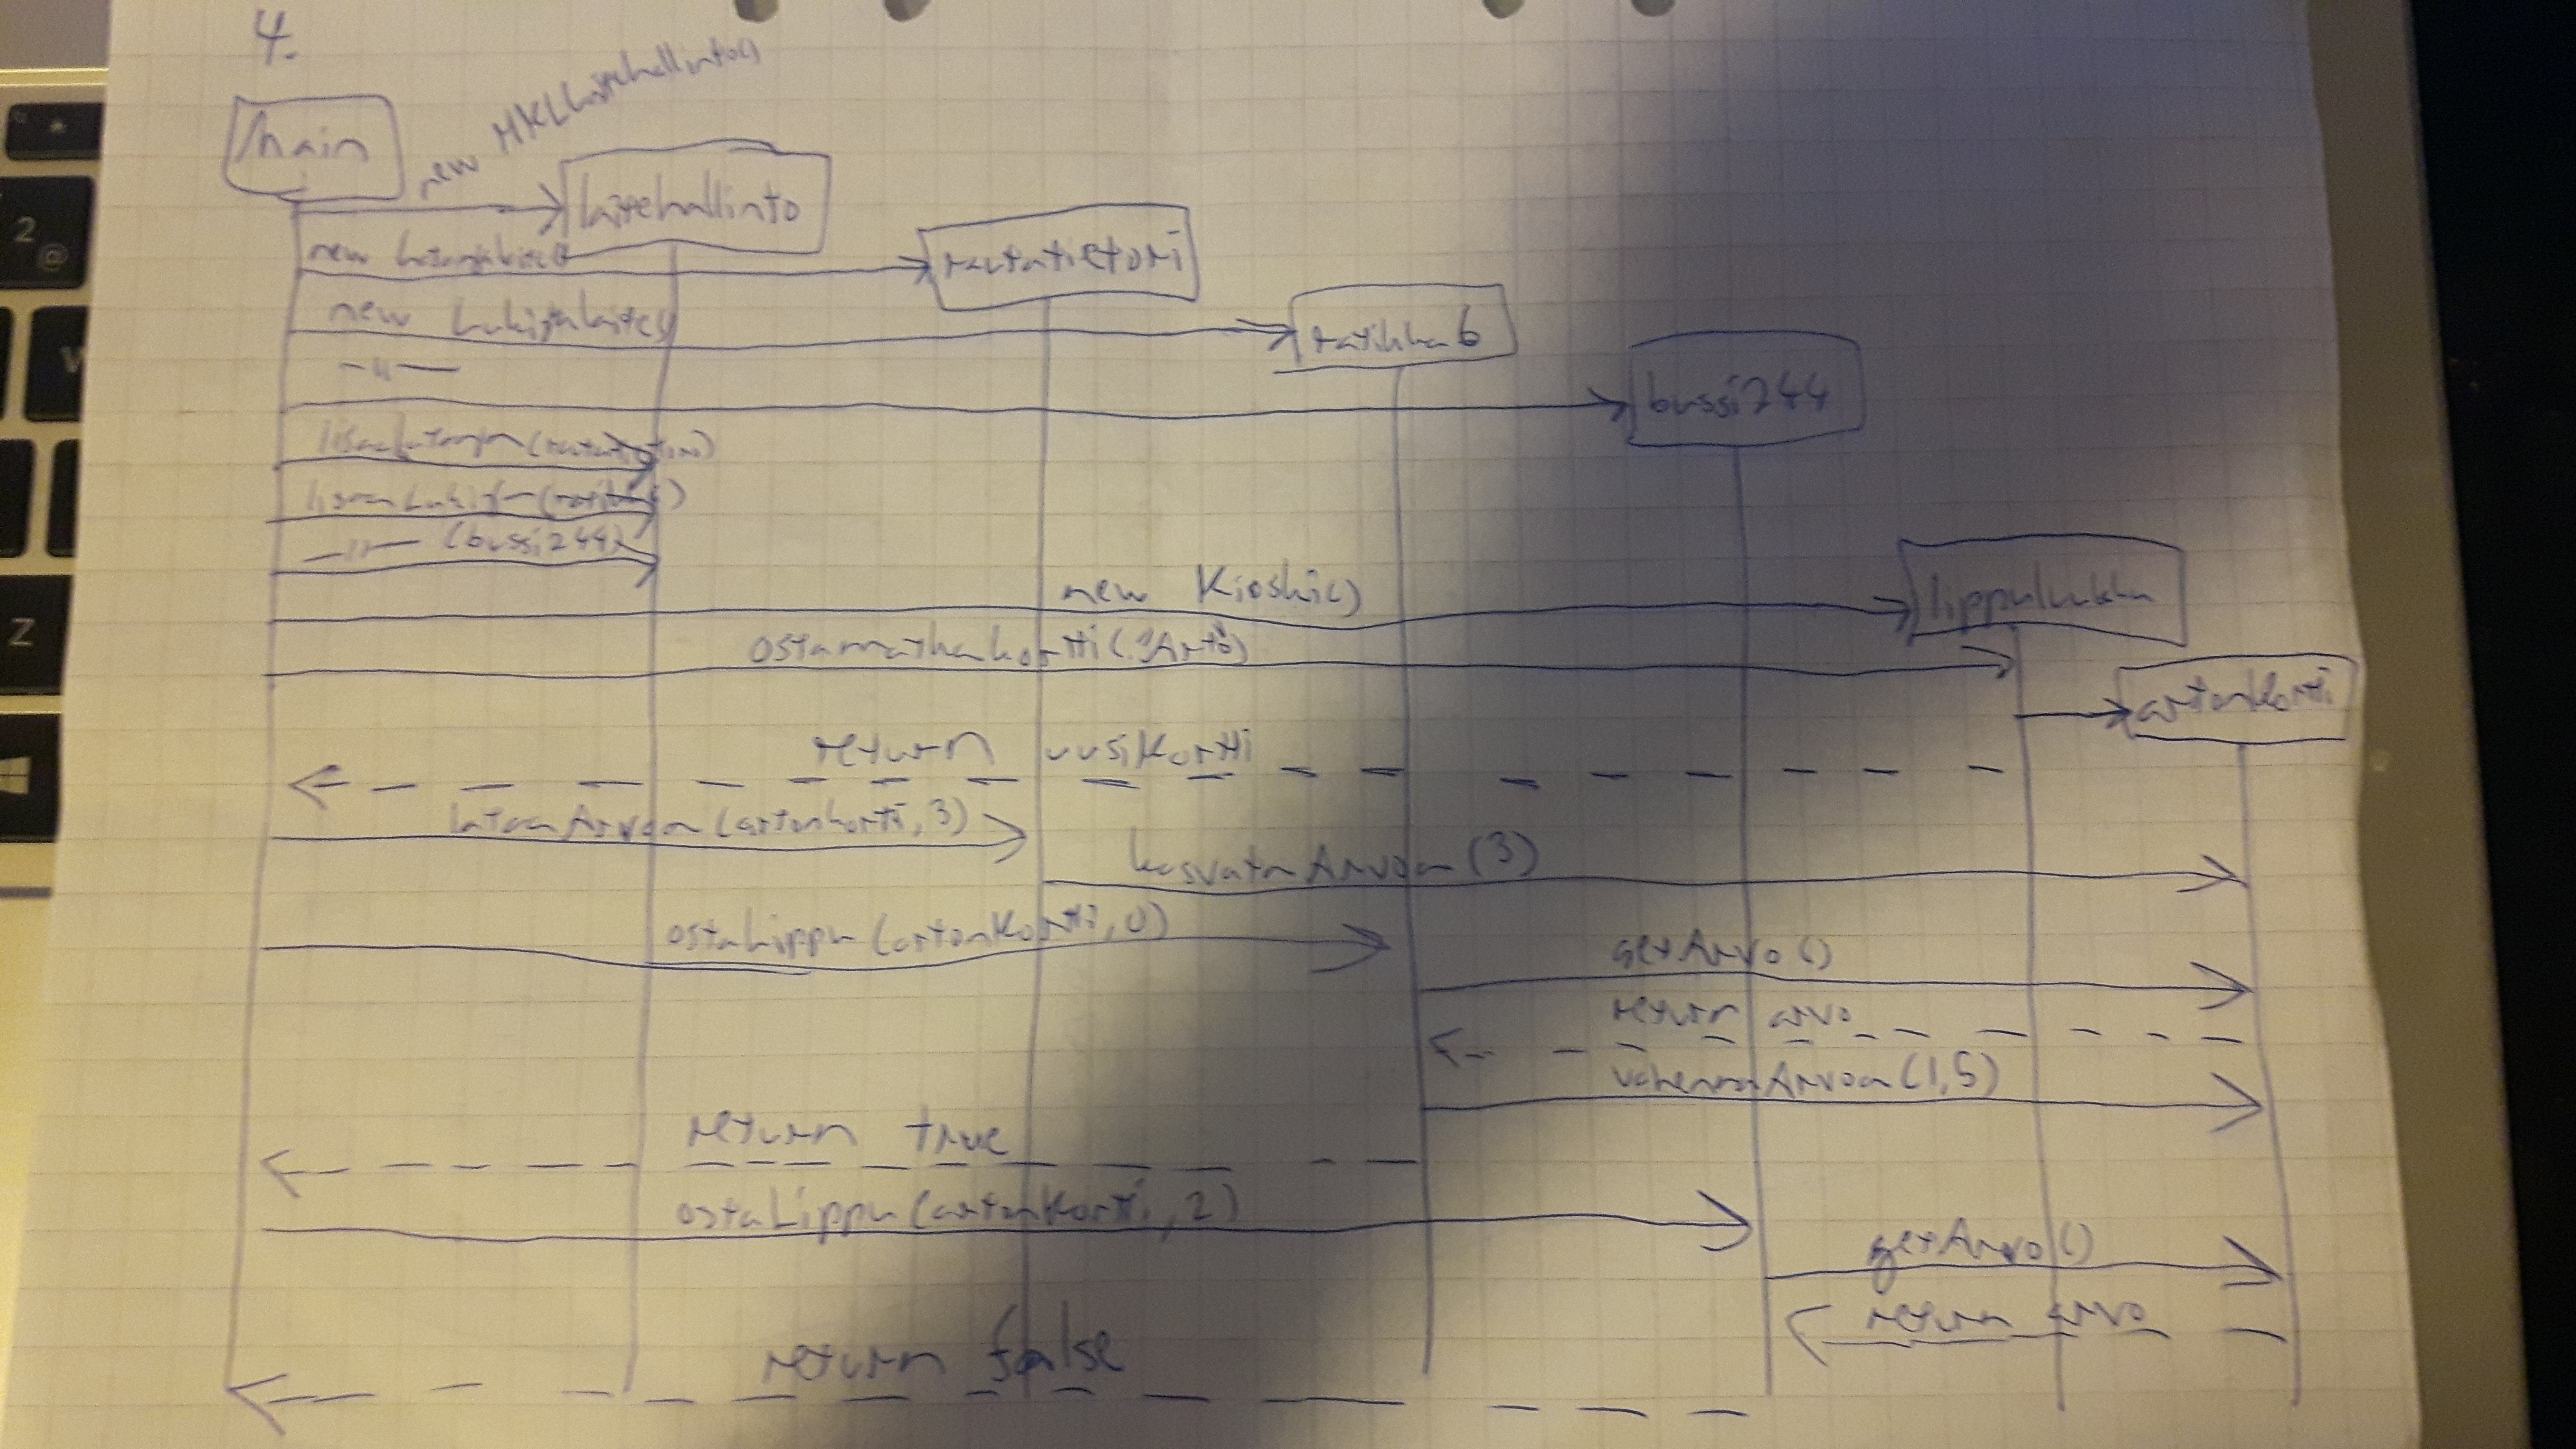 4.
main
new HKLLaitehallinto()
laitehallinto
new Lataajalaite()
rautatietori
new Lukijalaite()
ratikka6
-"-
bussi244
lisaaLataaja(rautatietori)
lisaaLukija(ratikka6)
-"- (bussi244)
new Kioski()
lippuluukku
ostamatkakortti("Arto")
artonKortti
return uusiKortti
lataaArvoa(artonkortti, 3)
kasvataArvoa(3)
ostaLippu(artonKortti, 0)
getArvo()
return arvo
vahennaArvoa(1,5)
return true
ostaLippu(artonKortti, 2)
getArvo()
return arvo
return false